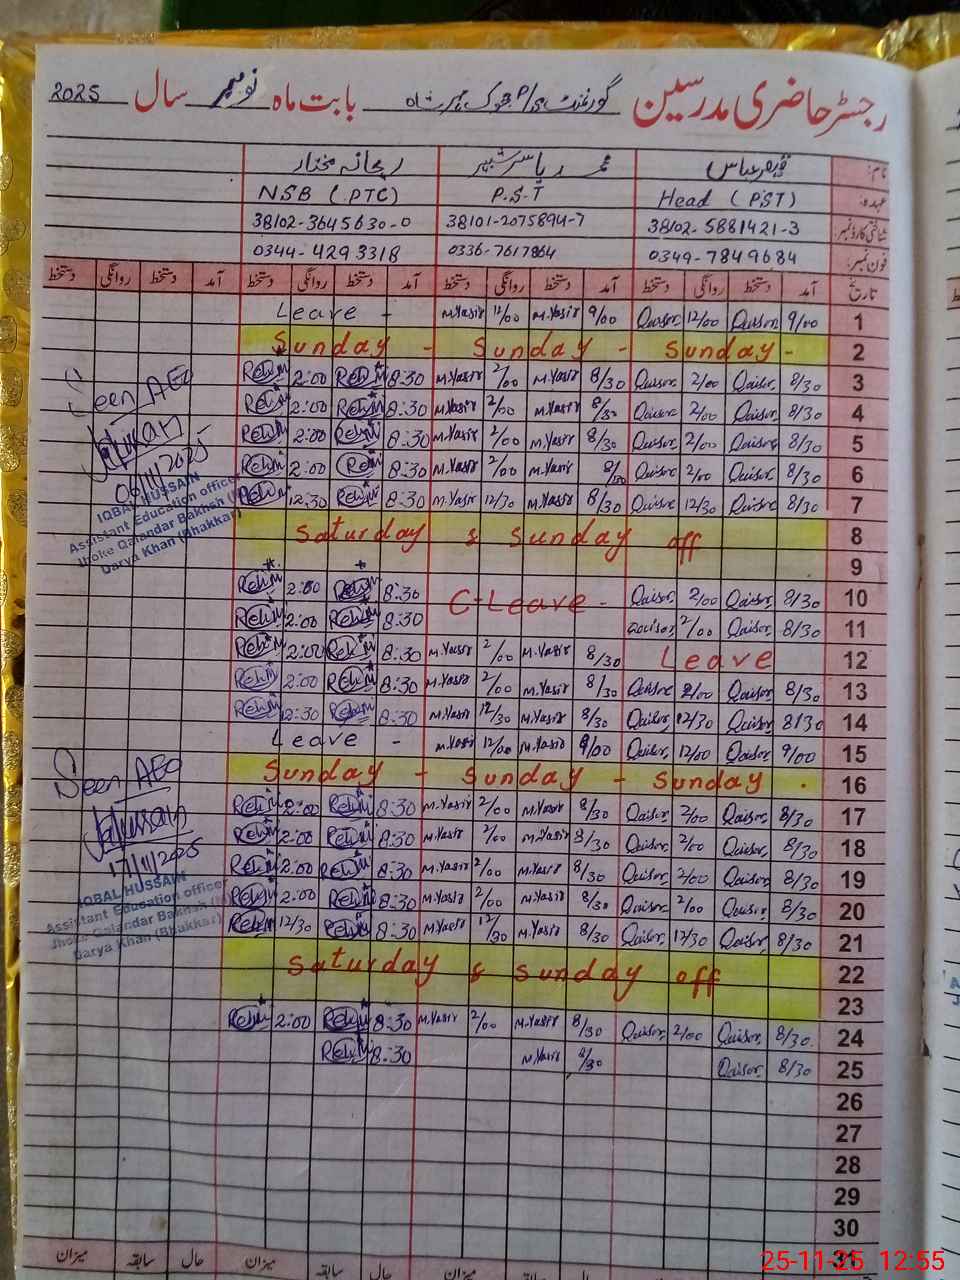 رجسٹر حاضری مدرسین گورنمنٹ بابت ماہ نومبر سال 2025
نام: قیصر عباس محمد یاسر شبیر ریحانہ مختار
عہدہ: Head (PST) P.S.T NSB (PTC)
شناختی کارڈ نمبر: 38102-5881421-3 38101-2075894-7 38102-3645630-0
فون نمبر: 0349-7849684 0336-7617864 0344-4293318
تاریخ آمد دستخط روانگی دستخط آمد دستخط روانگی دستخط آمد دستخط روانگی دستخط آمد دستخط روانگی دستخط
1 9/00 Qaisor 12/00 Qaisor 9/00 M.Yasir 12/00 M.Yasir Leave -
2 Sunday - Sunday - Sunday -
3 8/30 Qaisor 2/00 Qaisor 8/30 M.Yasir 2/00 M.Yasir 8:30 Rehm 2:00 Rehm
4 8/30 Qaisor 2/00 Qaisor 8/30 M.Yasir 2/00 M.Yasir 8:30 Rehm 2:00 Rehm
5 8/30 Qaisor 2/00 Qaisor 8/30 M.Yasir 2/00 M.Yasir 8:30 Rehm 2:00 Rehm
6 8/30 Qaisor 2/00 Qaisor M.Yasir 2/00 M.Yasir 8:30 Rehm 2:00 Rehm
7 8/30 Qaisor 12/30 Qaisor 8/30 M.Yasir 12/30 M.Yasir 8:30 Rehm 12:30 Rehm
8 Saturday & Sunday off
9
10 8/30 Qaisor 2/00 Qaisor C-Leave - 8:30 Rehm 2:00 Rehm
11 8/30 Qaisor 2/00 Qaisor 8:30 Rehm 2:00 Rehm
12 Leave 8/30 M.Yasir 2/00 M.Yasir 8:30 Rehm 2:00 Rehm
13 8/30 Qaisor 2/00 Qaisor 8/30 M.Yasir 2/00 M.Yasir 8:30 Rehm 2:00 Rehm
14 8/30 Qaisor 12/30 Qaisor 8/30 M.Yasir 12/30 M.Yasir 8:30 Rehm 12:30 Rehm
15 9/00 Qaisor 12/00 Qaisor 9/00 M.Yasir 12/00 M.Yasir Leave -
16 Sunday - Sunday - Sunday .
17 8/30 Qaisor 2/00 Qaisor 8/30 M.Yasir 2/00 M.Yasir 8:30 Rehm 2:00 Rehm
18 8/30 Qaisor 2/00 Qaisor 8/30 M.Yasir 2/00 M.Yasir 8:30 Rehm 2:00 Rehm
19 8/30 Qaisor 2/00 Qaisor 8/30 M.Yasir 2/00 M.Yasir 8:30 Rehm 2:00 Rehm
20 8/30 Qaisor 2/00 Qaisor 8/30 M.Yasir 2/00 M.Yasir 8:30 Rehm 2:00 Rehm
21 8/30 Qaisor 12/30 Qaisor 8/30 M.Yasir 12/30 M.Yasir 8:30 Rehm 12/30 Rehm
22 Saturday & Sunday off
23
24 8/30 Qaisor 2/00 Qaisor 8/30 M.Yasir 2/00 M.Yasir 8:30 Rehm 2:00 Rehm
25 8/30 Qaisor 8/30 M.Yasir 8:30 Rehm
26
27
28
29
30
31
حال سابقہ میزان حال سابقہ میزان
Seen AEO
06/11/2025
IQBAL HUSSAIN
Assistant Education officer
Jhoke Qalandar Bakhsh
Darya Khan (Bhakkar)
Seen AEO
17/11/2025
IQBAL HUSSAIN
Assistant Education officer
Jhoke Qalandar Bakhsh
Darya Khan (Bhakkar)
25-11-25 12:55